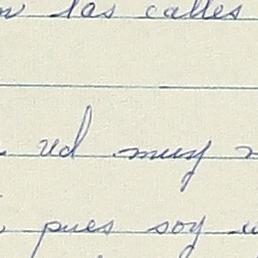 las calles
red muy
pues soy